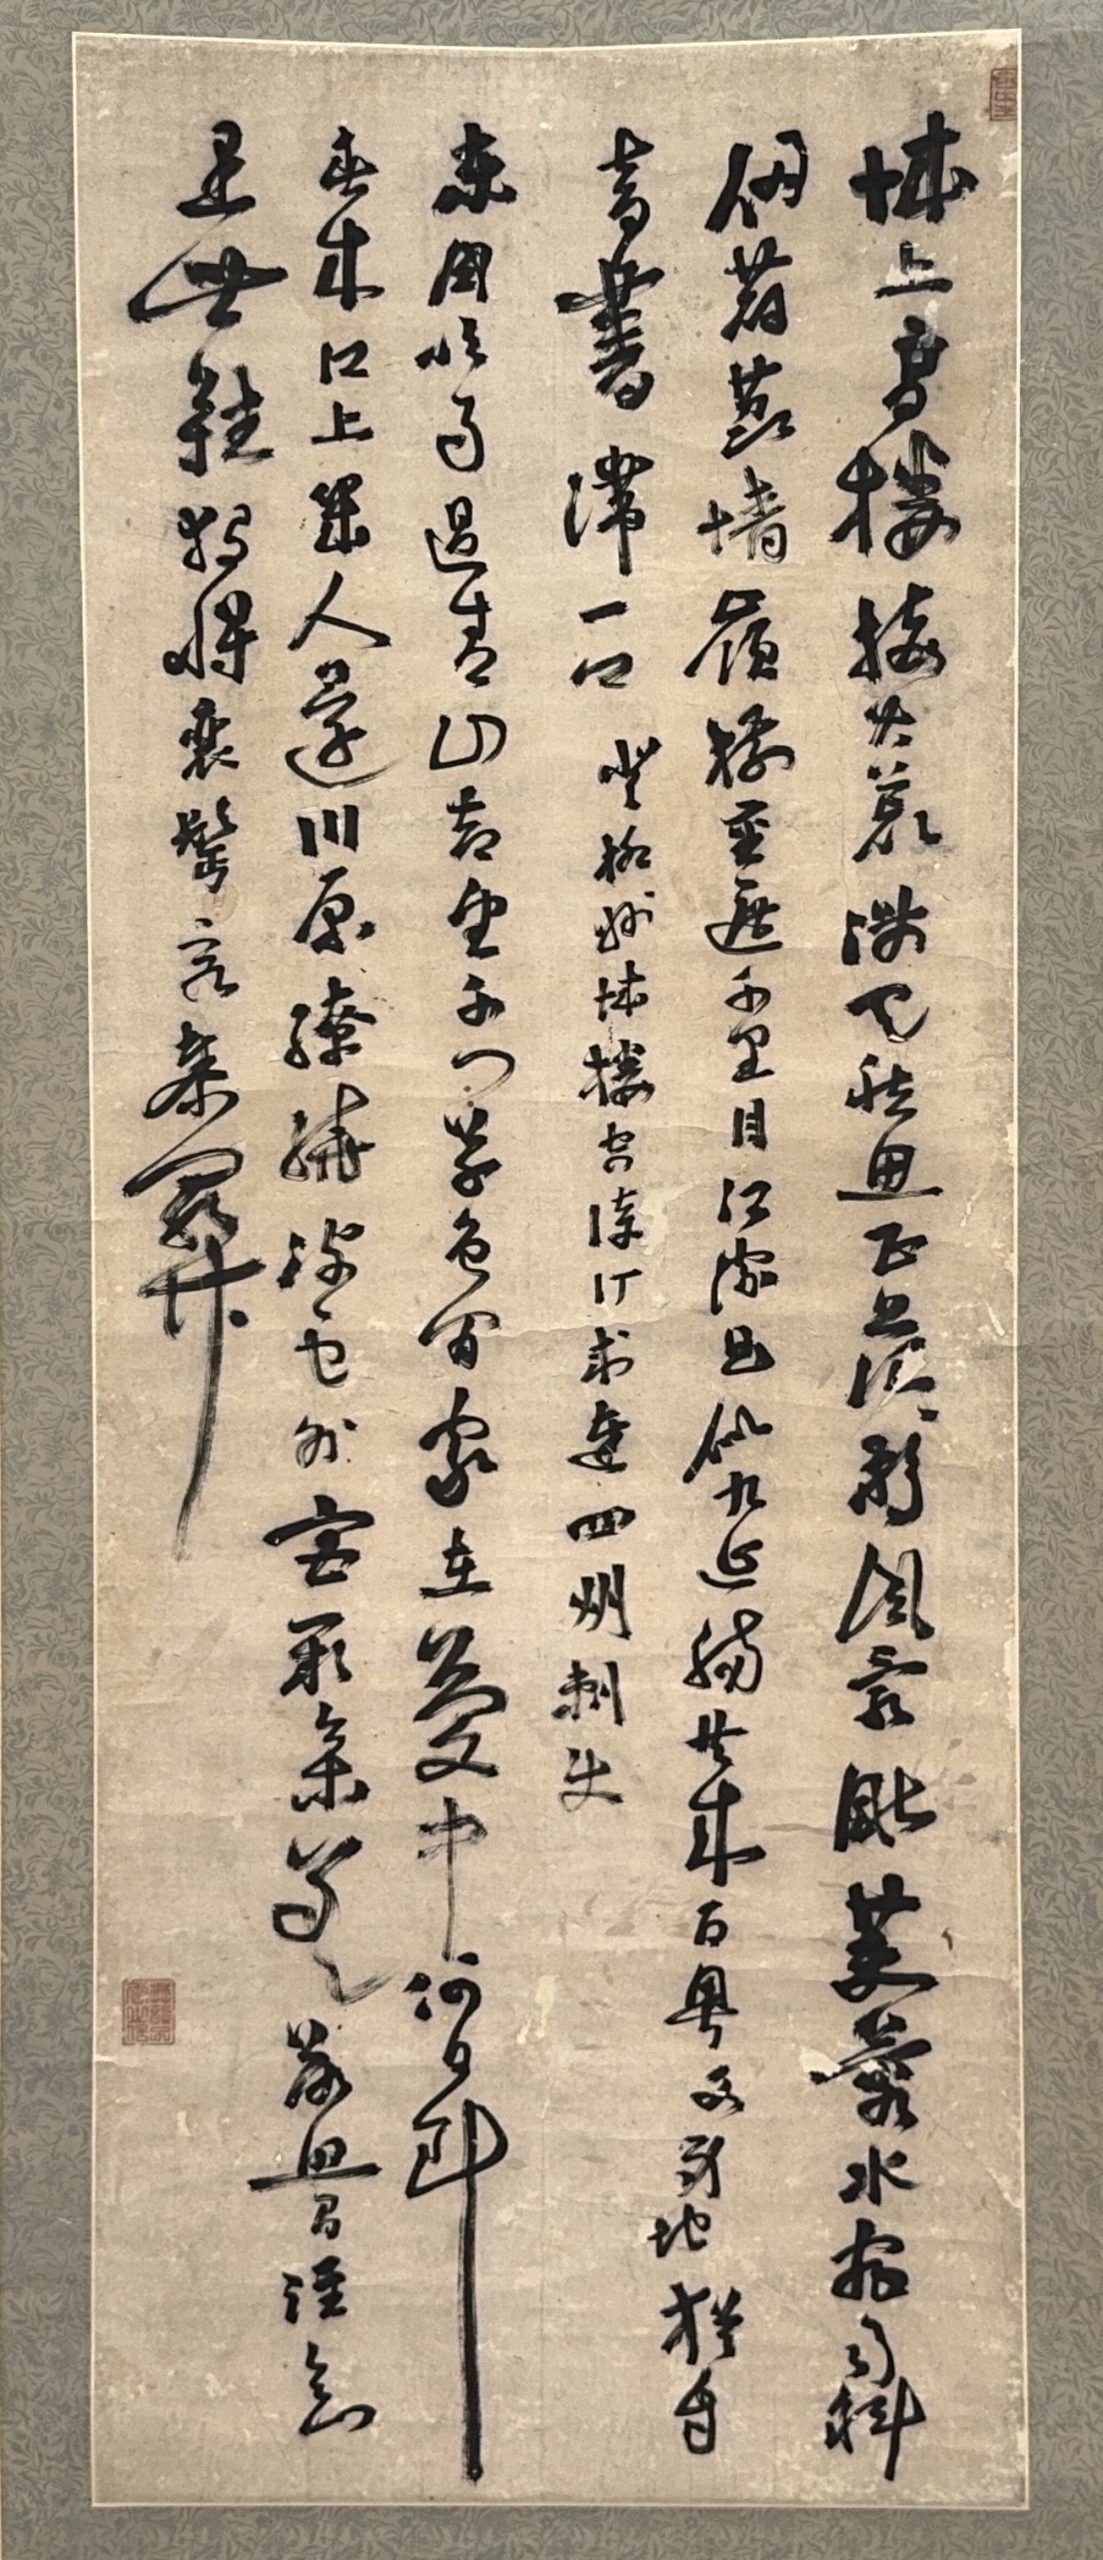 城上高樓接大荒海天愁思正茫茫驚風亂颭芙蓉水密雨斜
侵薜荔墻嶺樹重遮千里目江流曲似九迴腸共來百粵文身地猶自
音書滯一 登柳州城樓寄漳汀封連四州刺史
東風吹雨過青山却望千門草色閒家在夢中何日到
春來江上幾人還川原繚繞浮雲外宮闕參差落照間誰念
世難獨將衰鬢客秦關